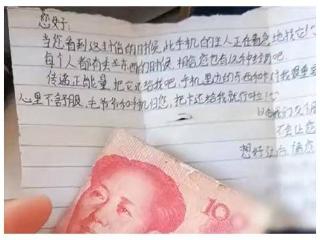 您好:
当您看到这封信的时候,此手机的主人正在着急地找它!
每个人都有丢东西的时候,相信您也有这种经历吧
传递正能量,把它还给我吧,手机里边的东西和卡对我很重要
心里不舒服,毛爷爷和手机归您,把卡还给我就行啦!
不会让您
想好
100